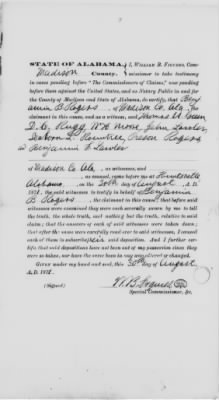 STATE OF ALABAMA, } I, WILLIAM B. FIGURES, Com-
Madison County. } missioner to take testimony
in cases pending before "The Commissioners of Claims," now pending
before them against the United States, and as Notary Public in and for
the County of Madison and State of Alabama, do certify, that Benj
amin B Rogers of Madison Co Ala, the
claimant in this cause, and as a witness, and Thomas W
D.C. Rugg, Wm Moore, John Lawler,
Rogers
& Benjamin F. Lawler
of Madison Co Ala, as witnesses, and
as counsel, came before me at Huntsville
Alabama, on the 20th day of August, A. D.
1878, the said witnesses to testify in behalf of Benjamin
B Rogers, the claimant in this cause; that before said
witnesses were examined they were each severally sworn by me to tell
the truth, the whole truth, and nothing but the truth, relative to said
claim; that the answers of each of said witnesses were taken down;
that after the same were carefully read over to said witnesses, I caused
each of them to subscribe said deposition. And I further cer-
tify that said depositions have not been out of my possession since they
were so taken, nor have the same been in any way altered or changed.
Given under my hand and seal, this 20th day of August
A. D. 1878.
(Signed)
Special Commissioner, &c.